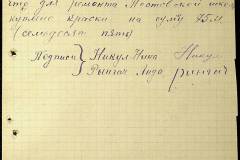 что для ремонта Постовской шко
купили краски на суму 75 м
(семьдесят пять)
Подписи } Никул Нина Никул
Рынгач Лида